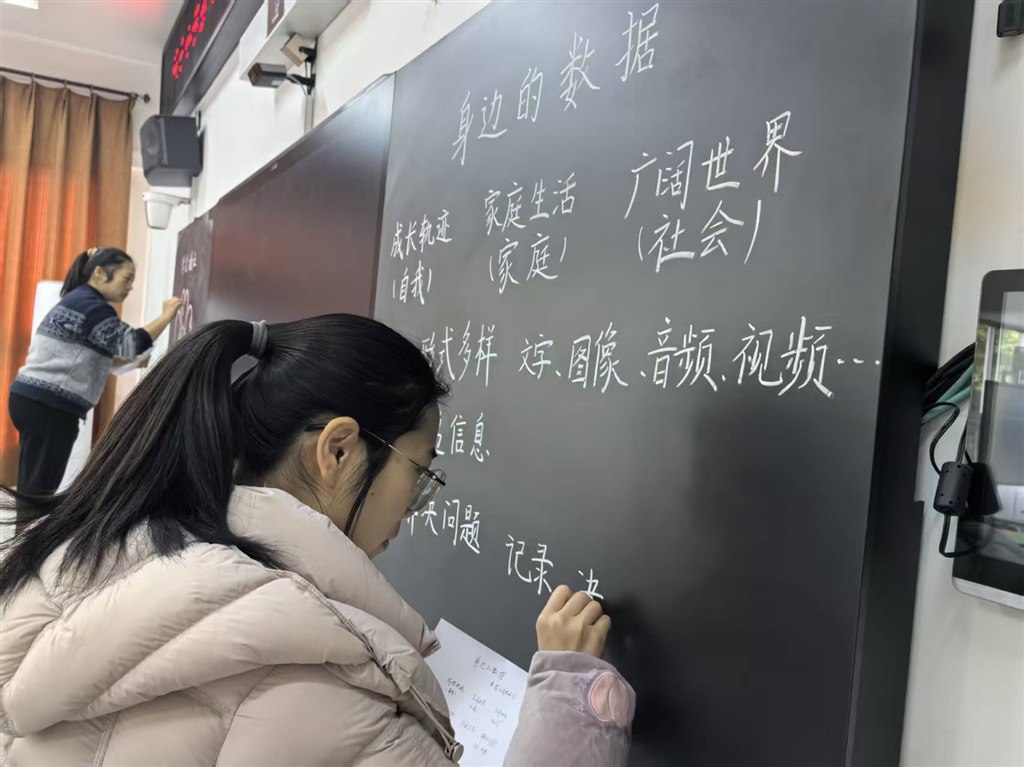 身边的数据
成长轨迹 家庭生活 广阔世界
(自我) (家庭) (社会)
式多样 文字、图像、音频、视频…
信息
决问题 记录